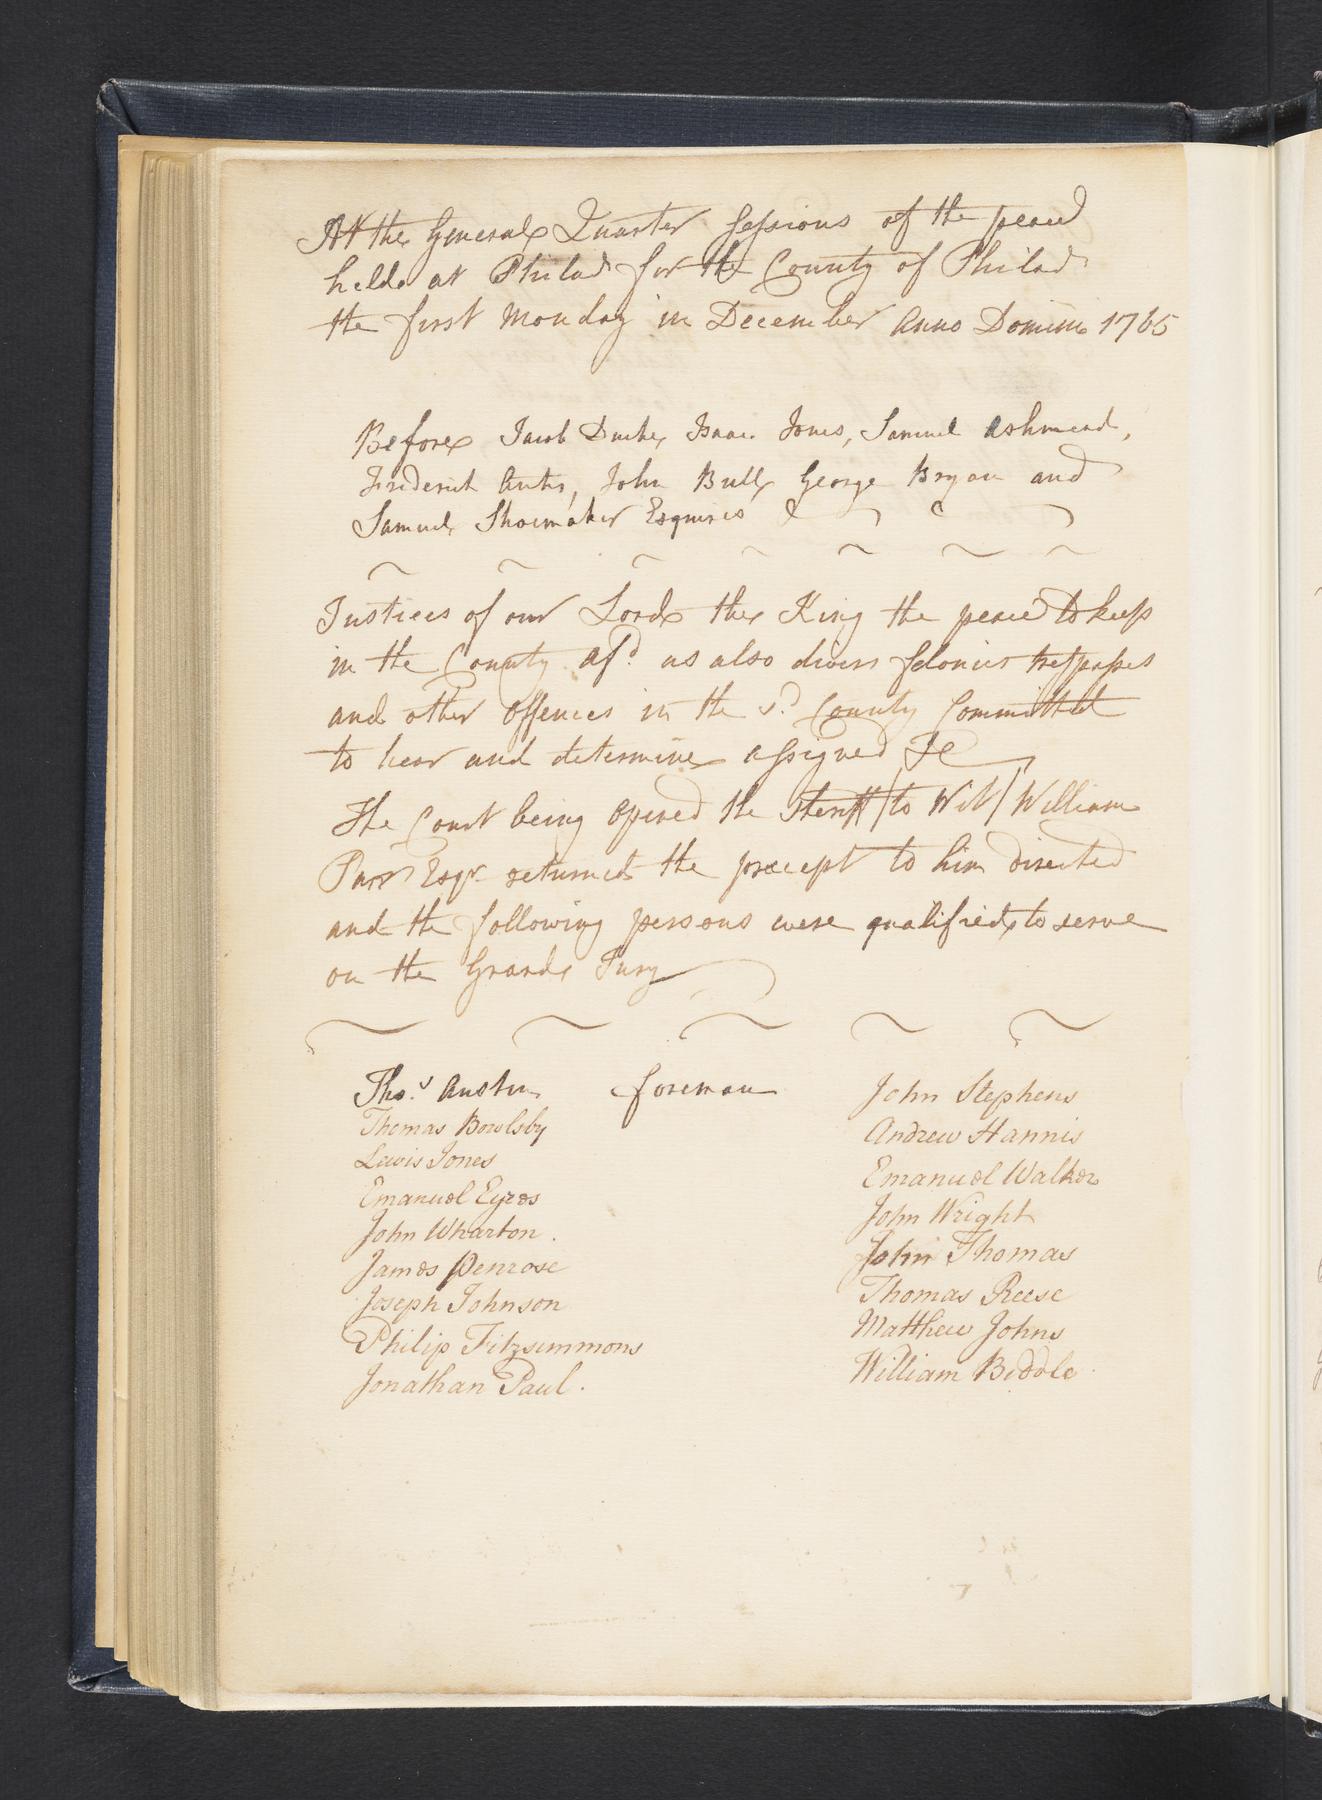 At the General Quarter Sessions of the peace
held at Philad for the County of Philad
the first Monday in December Anno Domini 1765
Before Jacob Duche, Isaac Jones, Samuel Ashmead,
Frederick Antis, John Bull, George Bryan and
Samuel Shoemaker Esquires
Justices of our Lord the King the peace to keep
in the County afd. as also divers felonies trespasses
and other offences in the sd. County Committed
to hear and determine assigned &c
The Court being opened the Sheriff / to Wit / William
Parr Esqr. returned the precept to him directed
and the following persons were qualified to serve
on the Grand Jury
Thos. Austin foreman
Thomas Bowlsby
Lewis Jones
Emanuel Eyres
John Wharton.
James Penrose
Joseph Johnson
Philip Fitzsimmons
Jonathan Paul.
John Stephens
Andrew Hannis
Emanuel Walker
John Wright
John Thomas
Thomas Reese
Matthew Johns
William Biddle